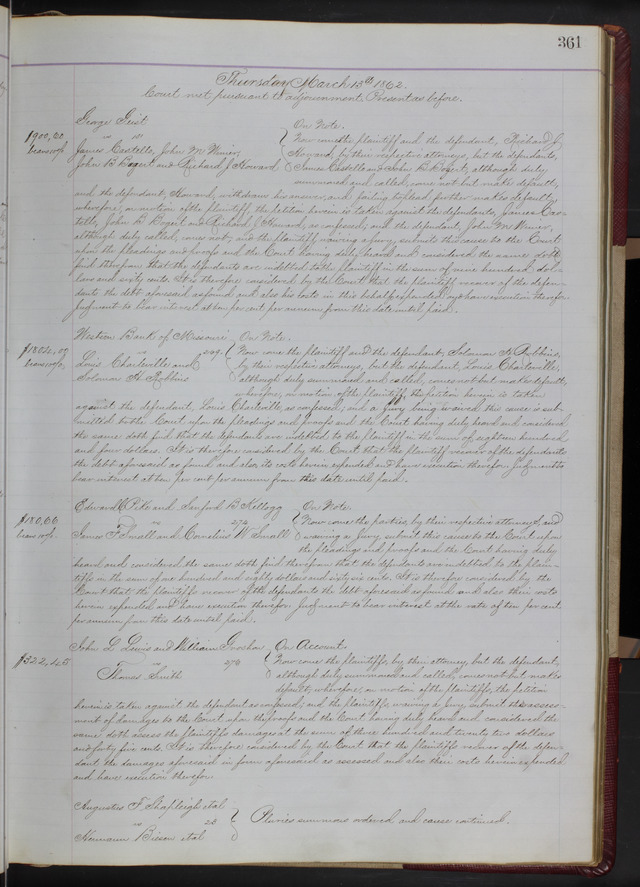 361
Thursday March 13th 1862.
Court met pursuant to adjournment. Present as before.
George Gest
vs 151
James Costello, John M Wimer,
John B Bogert and Richard J Howard
$900,60
On Note.
Now come the plaintiff and the defendant, Richard J
Howard, by their respective attorneys, but the defendants,
James Costello and John B Bogert, although duly
summoned and called, come not but make default,
and the defendant, Howard, withdraws his answer, and failing to plead further makes default,
wherefore, on motion of the plaintiff, the petition herein is taken against the defendants, James Cos-
tello, John B Bogert and Richard J Howard, as confessed, and the defendant, John M Wimer,
although duly called, comes not, and the plaintiff waiving a jury, submits this cause to the Court
upon the pleadings and proofs and the Court having duly heard and considered the same doth
find therefrom that the defendants are indebted to the plaintiff in the sum of nine hundred dol-
lars and sixty cents. It is therefore considered by the Court that the plaintiff recover of the defen-
dants the debt aforesaid as found and also his costs in this behalf expended and have execution therefor.
Judgment to bear interest at ten per cent per annum from this date until paid.
Western Bank of Missouri
vs 209.
Louis Charleville and
Solomon H Robbins
On Note.
Now come the plaintiff and the defendant, Solomon H Robbins,
by their respective attorneys, but the defendant, Louis Charleville,
although duly summoned and called, comes not but makes default,
wherefore, on motion of the plaintiff, the petition herein is taken
against the defendant, Louis Charleville, as confessed; and a jury being waived this cause is sub-
mitted to the Court upon the pleadings and proofs and the Court having duly heard and considered
the same doth find that the defendants are indebted to the plaintiff in the sum of eighteen hundred
and four dollars. It is therefore considered by the Court that the plaintiff recover of the defendants
the debt aforesaid as found and also its costs herein expended and have execution therefor. Judgment to
bear interest at ten per cent per annum from this date until paid.
Edward C Pike and Sanford B Kellogg
vs 274
James F Small and Cornelius W Small
$180,66
On Note.
Now come the parties, by their respective attorneys, and
waiving a jury, submit this cause to the Court upon
the pleadings and proofs and the Court having duly
heard and considered the same doth find therefrom that the defendants are indebted to the plain-
tiffs in the sum of one hundred and eighty dollars and sixty six cents. It is therefore considered by the
Court that the plaintiffs recover of the defendants the debt aforesaid as found and also their costs
herein expended and have execution therefor. Judgment to bear interest at the rate of ten per cent.
per annum from this date until paid.
John L Lewis and William
vs 276
Thomas Smith
$322,45
On Account.
Now come the plaintiffs, by their attorney, but the defendant,
although duly summoned and called, comes not but makes
default, wherefore, on motion of the plaintiffs, the petition
herein is taken against the defendant as confessed; and the plaintiffs, waiving a jury, submit the assess-
ment of damages to the Court upon the proofs and the Court having duly heard and considered the
same doth assess the plaintiffs damages at the sum of three hundred and twenty two dollars
and forty five cents. It is therefore considered by the Court that the plaintiffs recover of the defen-
dant the damages aforesaid in form aforesaid as assessed and also their costs herein expended
and have execution therefor.
Augustus F Shapleigh et al
vs 28
Hermann et al
Pluries summons ordered and cause continued.